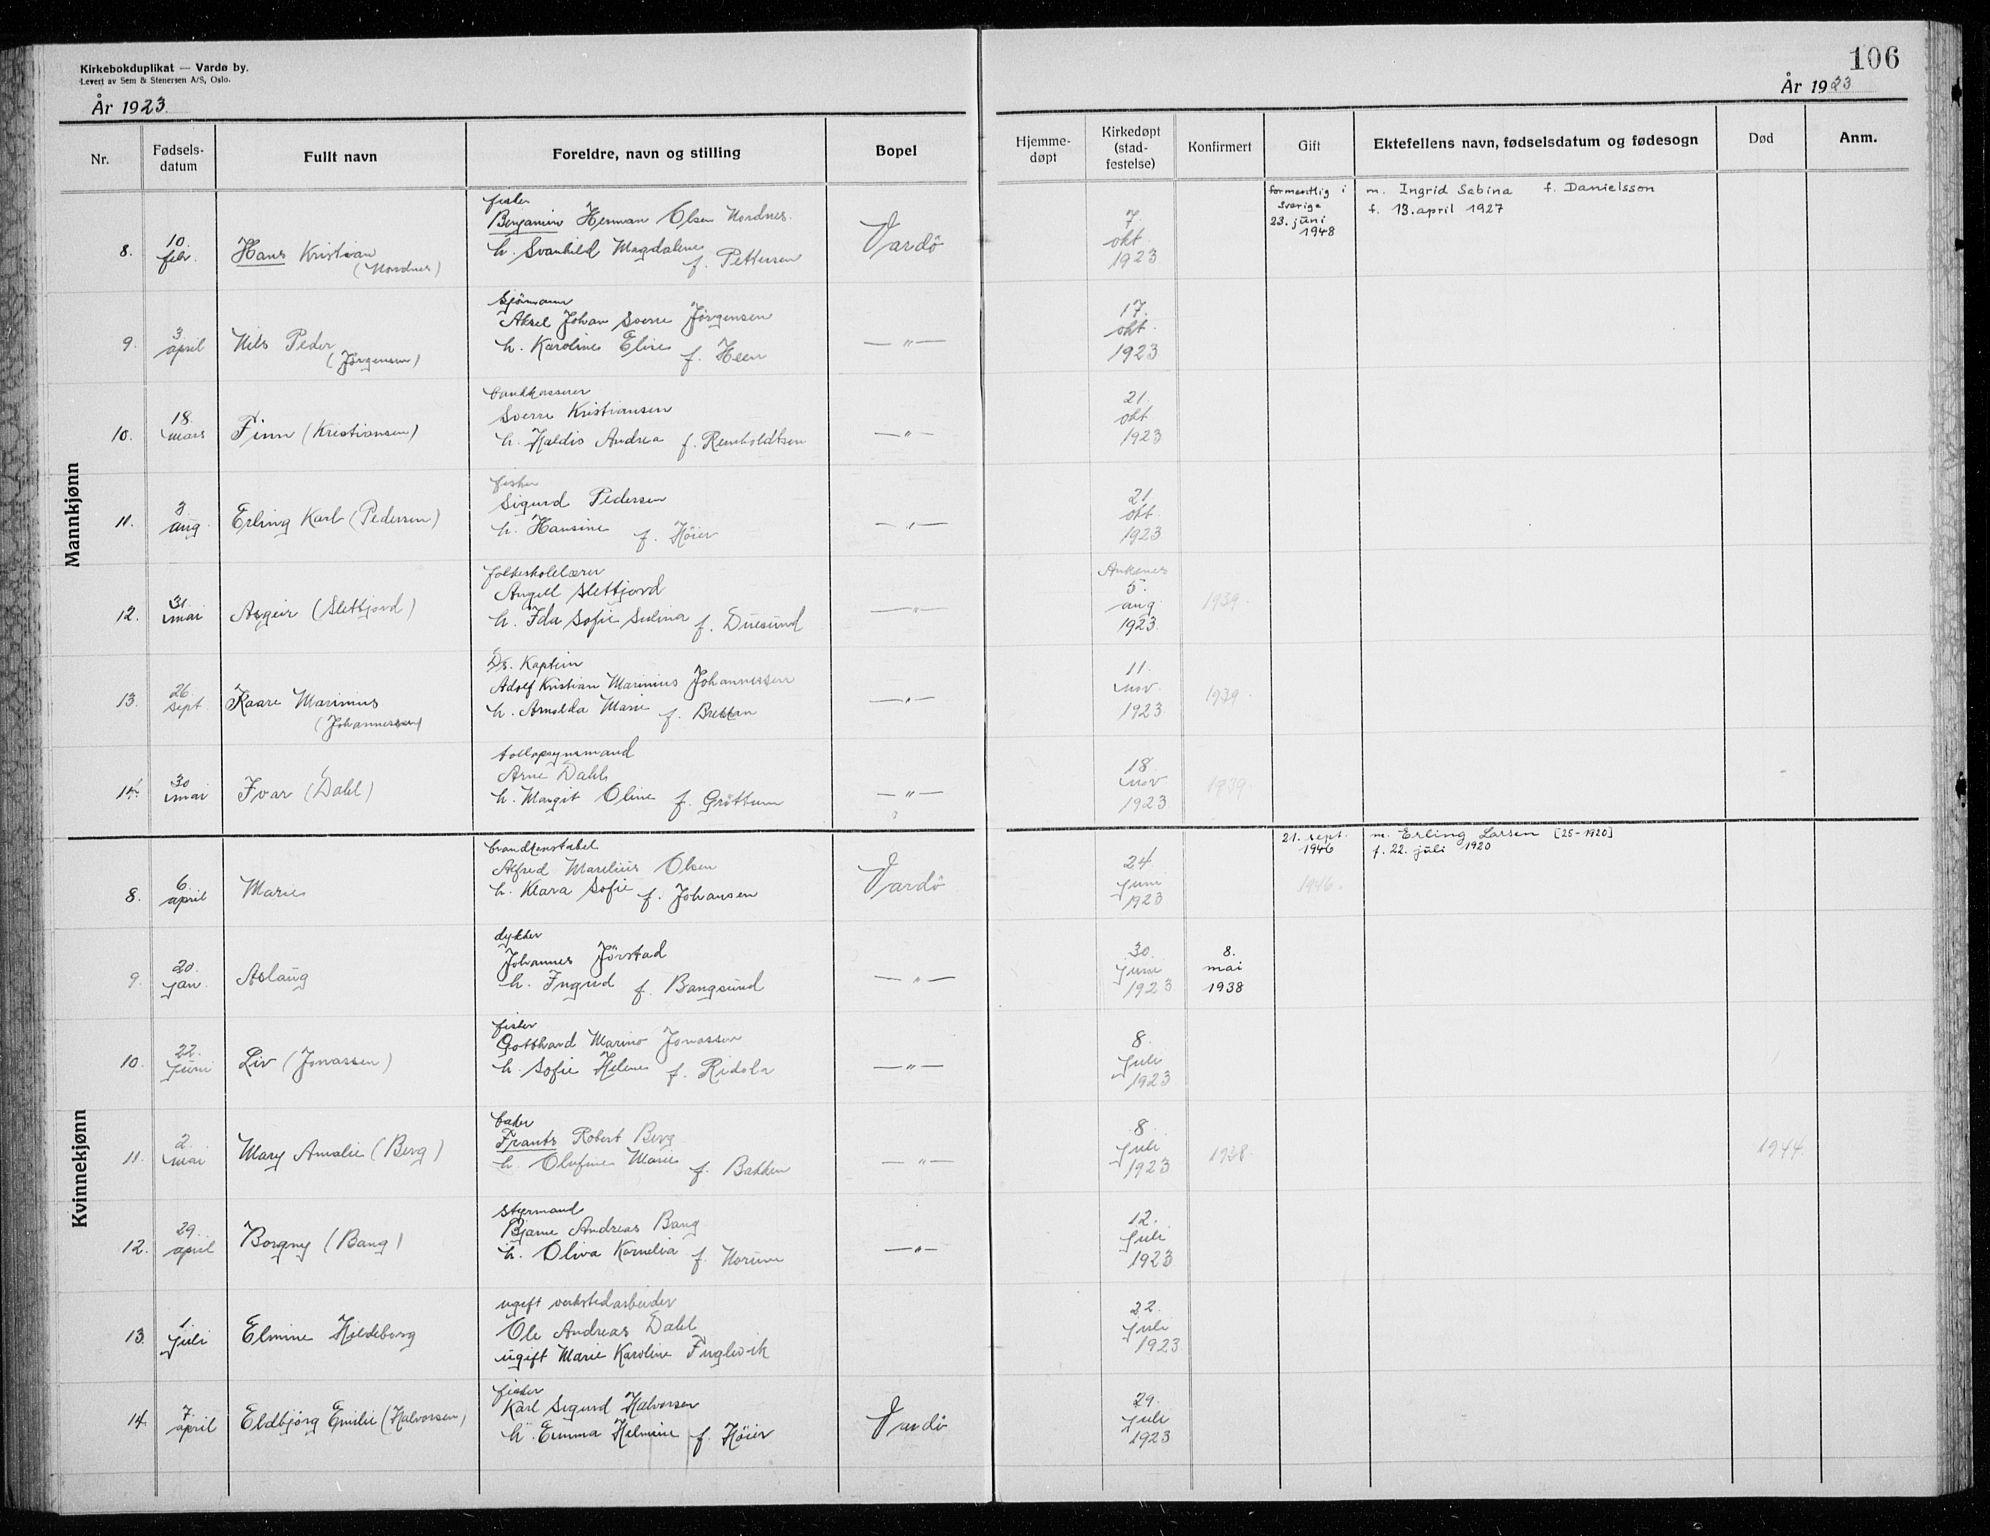 Kirkebokduplikat — Vardø by.
Levert av Sem & Stenersen A/S, Oslo.
År 1923.
106
År 1923
Nr. Fødsels-datum Fullt navn Foreldre, navn og stilling Bopel Hjemme-døpt Kirkedøpt (stad-festelse) Konfirmert Gift Ektefellens navn, fødselsdatum og fødesogn Død Anm.
Mannkjønn
fisker
8. 10. febr. Hans Kristian (Nordnes) Benjamin Herman Olsen Nordnes.
h. Svanhild Magdalene f. Pettersen
Vardö
7. okt. 1923
formentlig i Sverige 23. juni 1948
m. Ingrid Sabina f. Danielsson
f. 13. april 1927
sjömann
9. 3. april Nils Peder (Jörgensen) Aksel Johan Sverre Jörgensen
h. Karoline Elise f. Heen
—"—
17. okt. 1923
bankkasserer
10. 18. mars Finn (Kristiansen) Sverre Kristiansen
h. Haldis Andrea f. Reinholdtsen
—"—
21. okt. 1923
fisker
11. 3. aug. Erling Karl (Pedersen) Sigurd Pedersen
h. Hansine f. Höier
—"—
21. okt. 1923
folkeskolelærer
12. 31. mai Asgeir (Slettjord) Angell Slettjord
h. Ida Sofie Selina f. Duesund
—"—
Ankenes 5. aug. 1923
1939.
Ds. Kaptein
13. 26. sept. Kaare Marinius (Johannessen) Adolf Kristian Marinius Johannessen
h. Arnolda Marie f.
—"—
11. nov. 1923
1939.
tollopsynsmand
14. 30. mai Ivar (Dahl) Arne Dahl
h. Margit Oline f. Gröttum
—"—
18. nov. 1923
1939.
Kvinnekjønn
brandkonstabel
8. 6. april Marie Alfred Marelius Olsen
h. Klara Sofie f. Johansen
Vardö
24. juni 1923
21. sept. 1946
1946.
m. Erling Larsen [25-1920]
f. 22. juli 1920
dykker
9. 20. jan. Aslaug Johannes Jörstad
h. Ingrid f. Bangsund
—"—
30. juni 1923
8. mai 1938
fisker
10. 22. juni Liv (Jonassen) Gotthard Marino Jonassen
h. Sofie Helene f. Ridola
—"—
8. juli 1923
bader
11. 2. mai Mary Amalie (Berg) Frants Robert Berg
h. Olufine Marie f. Bakken
—"—
8. juli 1923
1938.
1944.
styrmand
12. 29. april Borgny (Bang) Bjarne Andreas Bang
h. Oliva Kornelia f. Norum
—"—
12. juli 1923
ugift verkstedarbeider
13. 1. juli Elmine Hildeborg Ole Andreas Dahl
ugift Marie Karoline Fuglevik
22. juli 1923
fisker
14. 7. april Eldbjörg Emilie (Halvorsen) Karl Sigurd Halvorsen
h. Emma Helmine f. Höier
Vardö
29. juli 1923